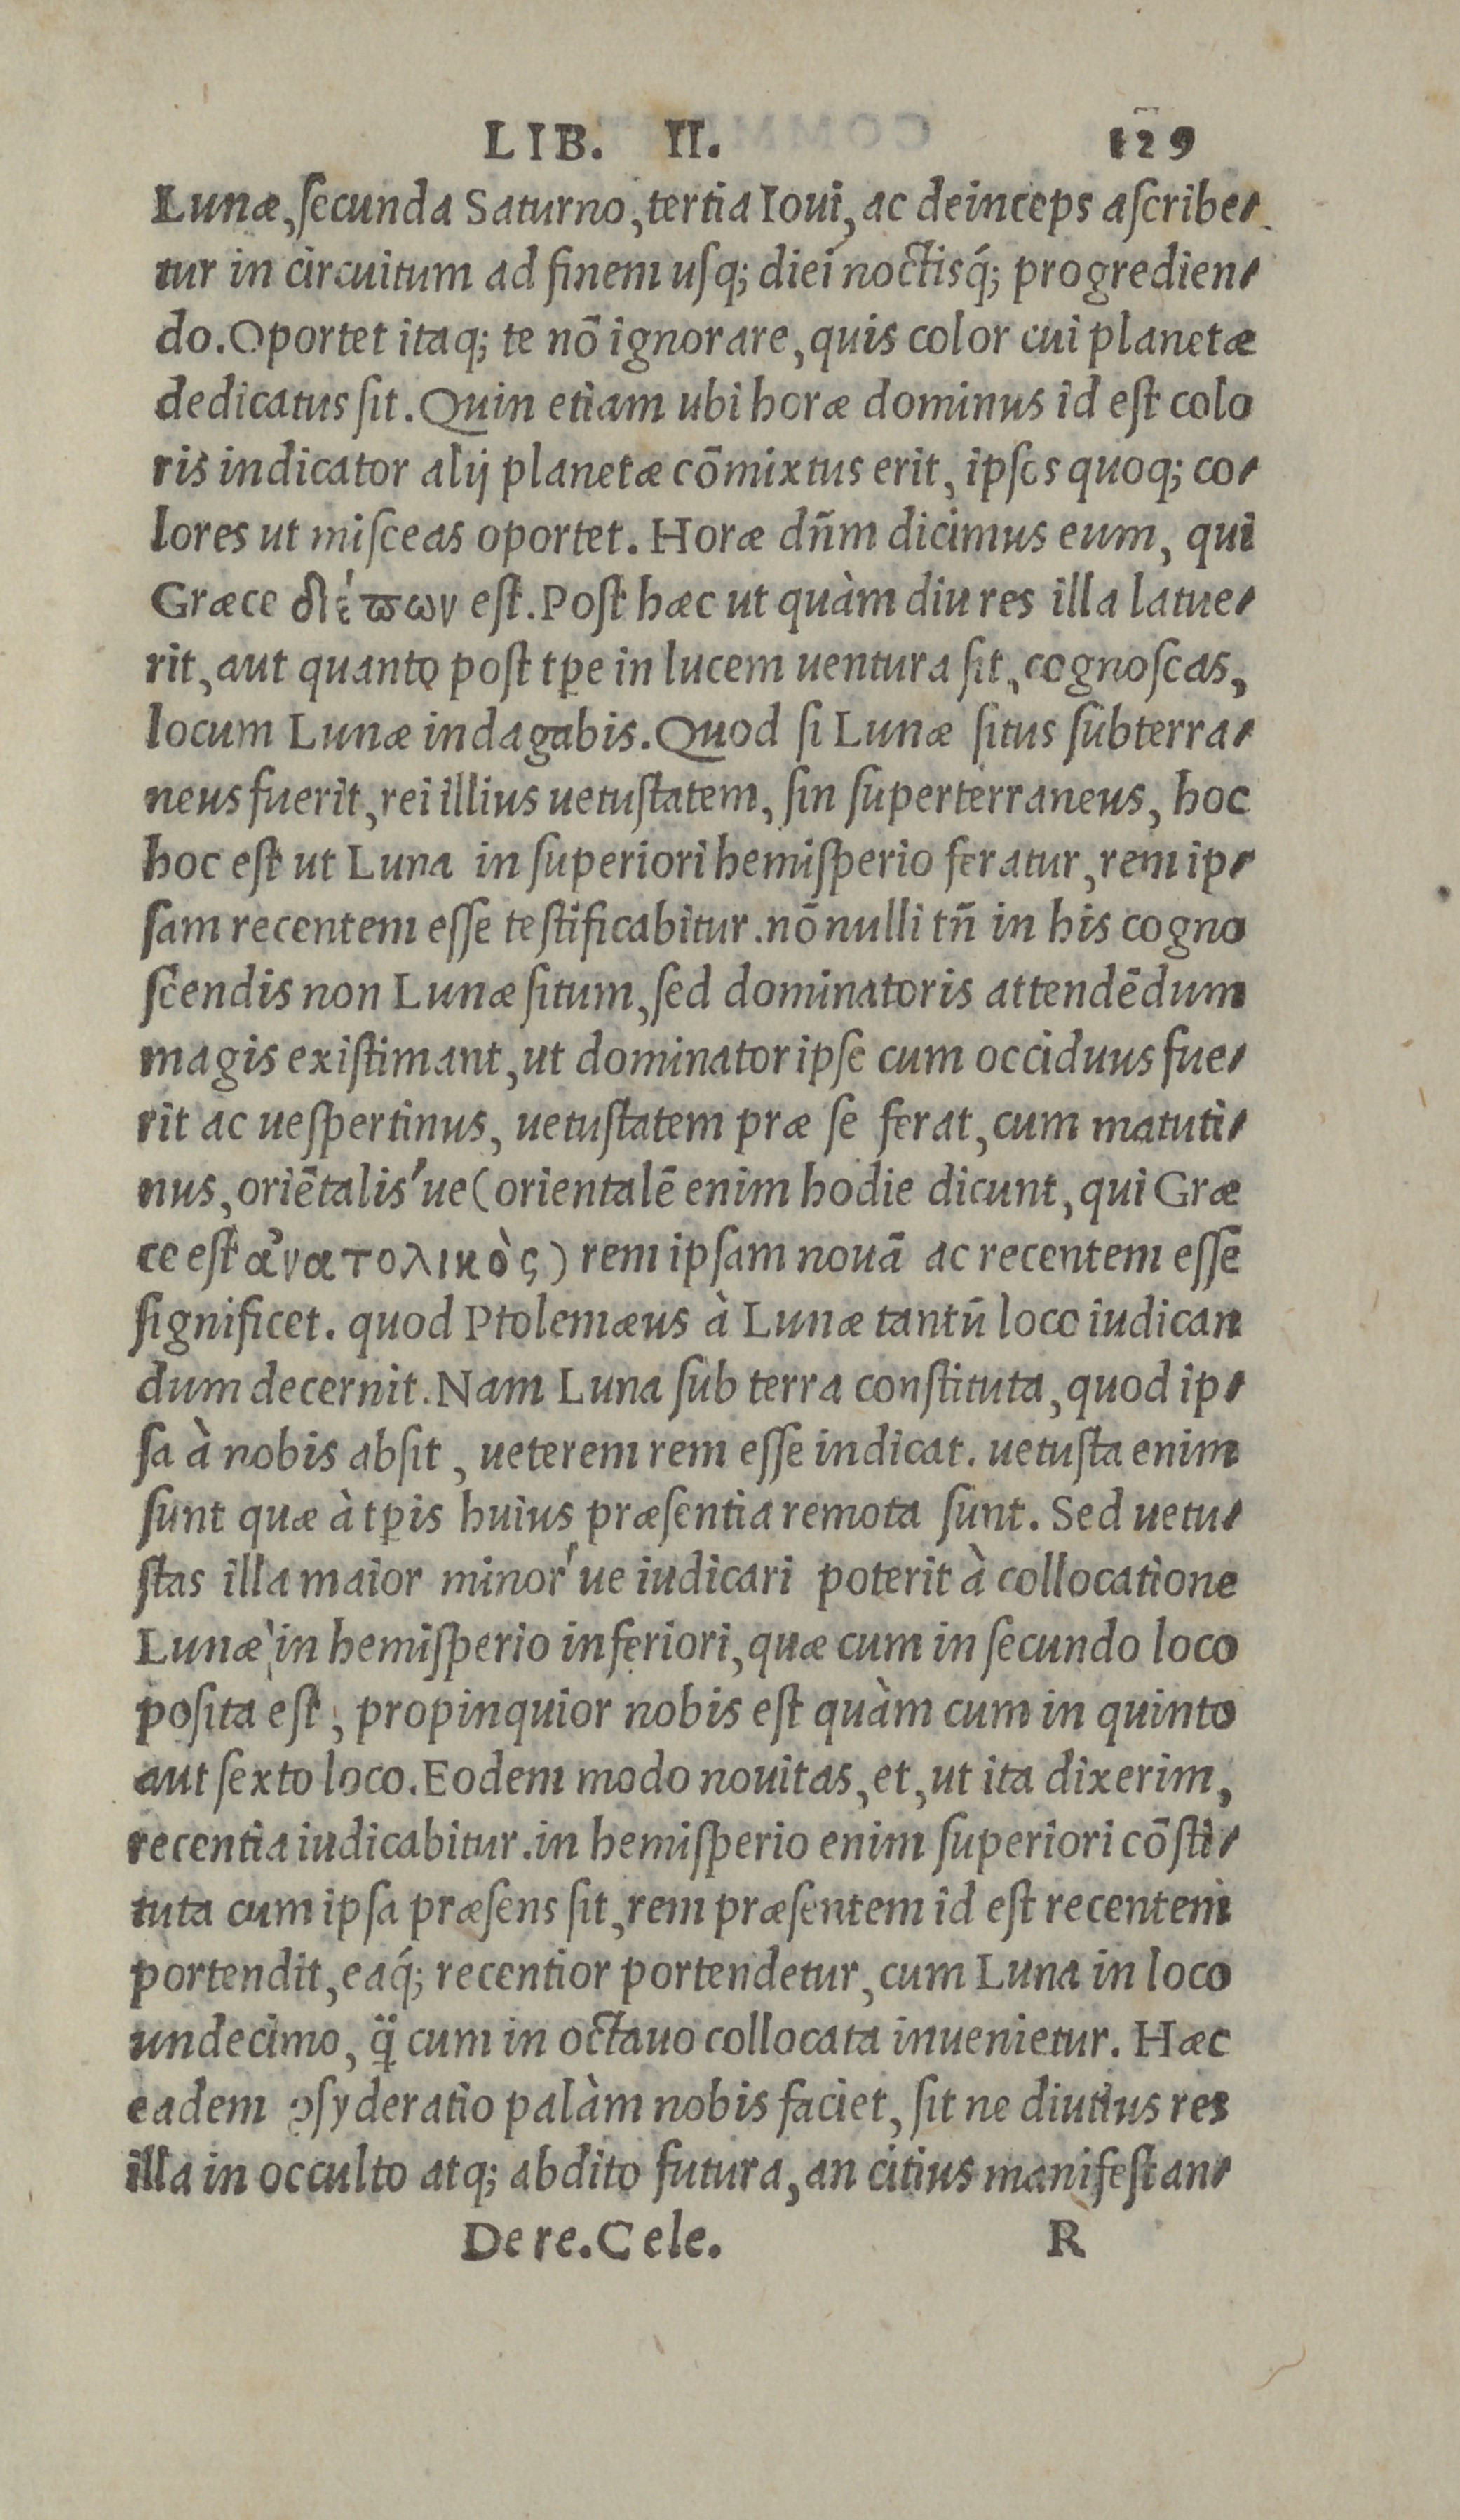 LIB. II. 129
Lunæ, ſecunda Saturno, tertia Ioui, ac deinceps aſcribe-
tur in circuitum ad finem uſq; diei noctisq́; progredien-
do. Oportet itaq; te nō ignorare, quis color cui planetæ
dedicatus ſit. Quin etiam ubi horæ dominus id eſt colo
ris indicator alij planetæ cōmixtus erit, ipſos quoq; co-
lores ut miſceas oportet. Horæ dn̄m dicimus eum, qui
Græce διέϖων eſt. Poſt hæc ut quàm diu res illa latue-
rit, aut quanto poſt tp̄e in lucem uentura ſit, cognoſcas,
locum Lunæ indagabis. Quod ſi Lunæ ſitus ſubterra-
neus fuerit, rei illius uetuſtatem, ſin ſuperterraneus, hoc
hoc eſt ut Luna in ſuperiori hemiſperio feratur, rem ip-
ſam recentem eſſe teſtificabitur. nō nulli tn̄ in his cogno
ſcendis non Lunæ ſitum, ſed dominatoris attendēdum
magis exiſtimant, ut dominator ipſe cum occiduus fue-
rit ac ueſpertinus, uetuſtatem præ ſe ferat, cum matuti-
nus, oriētalis'ue (orientalē enim hodie dicunt, qui Græ
ce eſt ἀνατολικὸς) rem ipſam nouā ac recentem eſſe
ſignificet. quod Ptolemæus à Lunæ tantū loco iudican
dum decernit. Nam Luna ſub terra conſtituta, quod ip-
ſa à nobis abſit, ueterem rem eſſe indicat. uetuſta enim
ſunt quæ à tp̄is huius præſentia remota ſunt. Sed uetu-
ſtas illa maior minor'ue iudicari poterit à collocatione
Lunæ in hemiſperio inferiori, quæ cum in ſecundo loco
poſita eſt, propinquior nobis eſt quàm cum in quinto
aut ſexto loco. Eodem modo nouitas, et, ut ita dixerim,
recentia iudicabitur. in hemiſperio enim ſuperiori cōſti-
tuta cum ipſa præſens ſit, rem præſentem id eſt recentem
portendit, eaq́; recentior portendetur, cum Luna in loco
undecimo, q̈ cum in octauo collocata inuenietur. Hæc
eadem ↄſyderatio palàm nobis faciet, ſit ne diutius res
illa in occulto atq; abdito futura, an citius manifeſtan-
De re. Cele. R